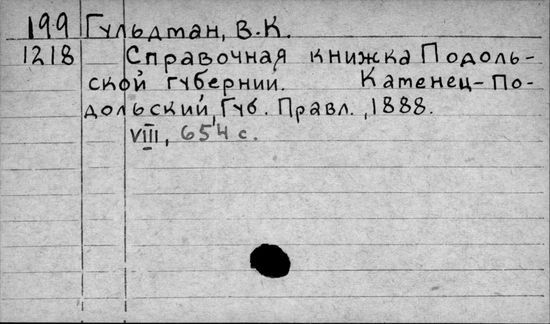 199 Гульдман, В.К.
1218 Справочная книжка Подоль-
ской губернии. Каменец-По-
дольский, Губ. Правл., 1888.
VIII, 654 с.